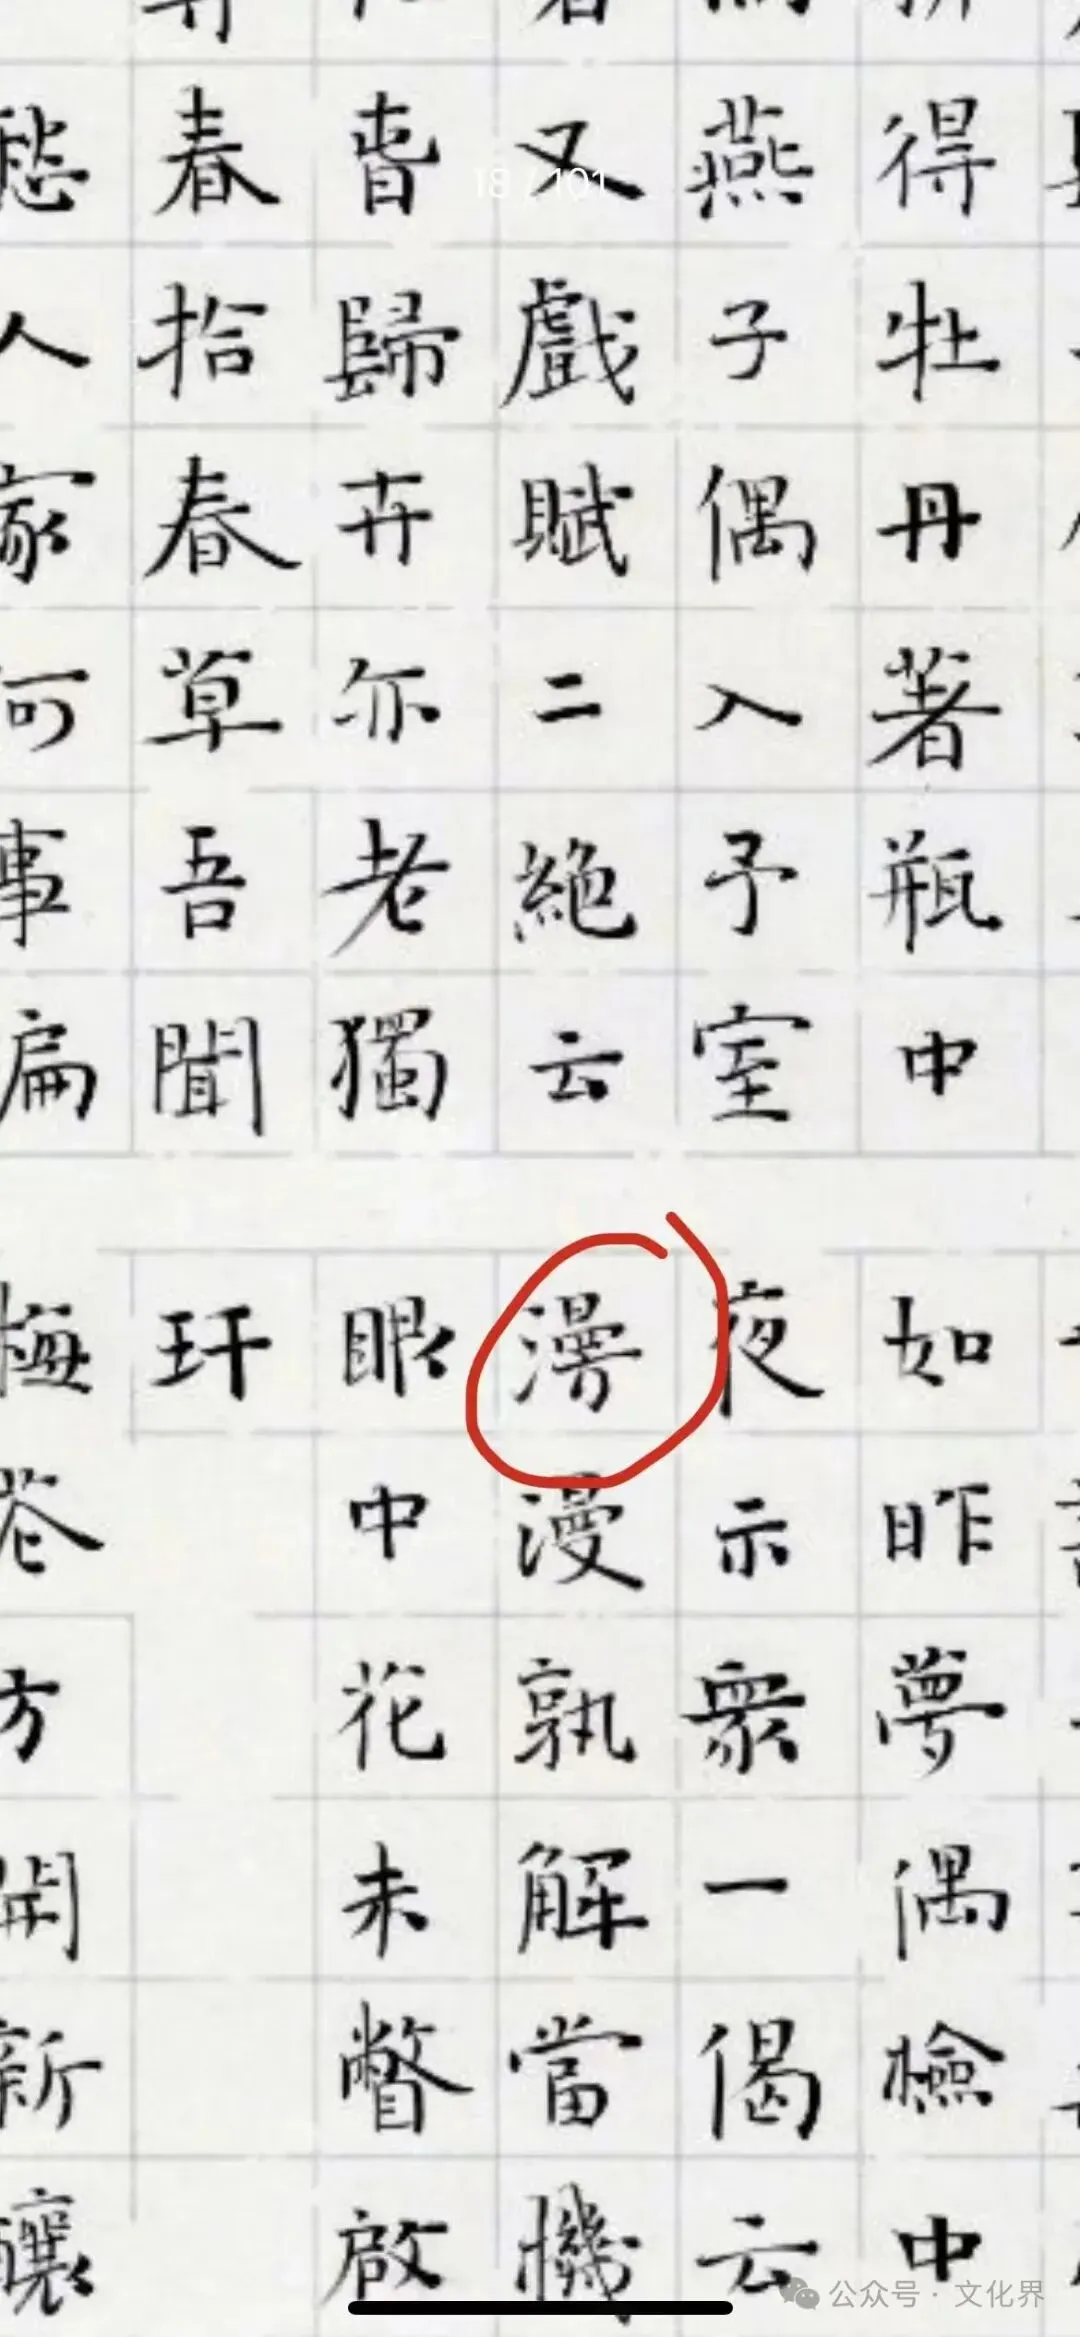 得牡丹著瓶中
燕子偶入予室
又戲賦二絕云
旾歸卉亦老獨
春拾春草吾聞
愁人家何事扁
如昨夢偶檢中
夜示衆一偈云
漫孰解當機
眼中花未瞥啟
玕
梅方開新釀
18 / 101
公众号 · 文化界